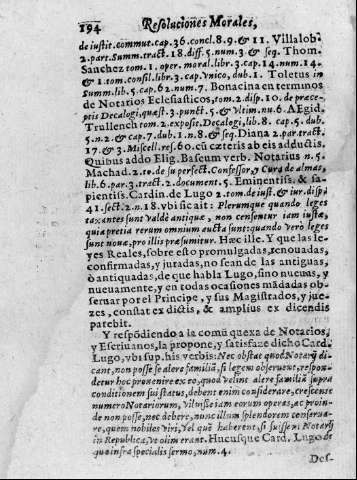 194 Resoluciones Morales,
de iustit. commut. cap. 36. concl. 8. 9. & 11. Villalob.
2. part. Summ. tract. 18. diff. 5. num. 3. & seq. Thom.
Sanchez tom. 1. oper. moral. libr. 3. cap. 14. num. 14.
& 1. tom. consil. libr. 3. cap. vnico, dub. 1. Toletus in
Summ. lib. 5. cap. 62. num. 7. Bonacina en terminos
de Notarios Eclesiasticos, tom. 2. disp. 10. de præce-
ptis Decalogi, quæst. 3. punct. 5. & vltim. nu. 6. Ægid.
Trullench tom. 2. exposit. Decalogi, lib. 8. cap. 5. dub.
5. n. 2. & cap. 7. dub. 1. n. 8. & seq. Diana 2. par. tract.
17. & 3. Miscell. res. 60. cũ cæteris ab eis adductis.
Quibus addo Elig. Baseum verb. Notarius n. 5.
Machad. 2. to. de su perfect. Confessor, y Cura de almas,
lib. 6. par. 3. tract. 2. document. 5. Eminentiss. & sa-
pientiss. Cardin. de Lugo 2. tom. de iust. & iur. disp.
41. sect. 2. n. 18. vbi sic ait: Plerumque quando leges
taxantes sunt valdè antiquæ, non censentur iam iustæ,
quia pretia rerum omnium aucta sunt: quando verò leges
sunt nouæ, pro illis præsumitur. Hæc ille. Y que las le-
yes Reales, sobre esto promulgadas, renouadas,
confirmadas, y juradas, no sean de las antiguas,
ò antiquadas, de que habla Lugo, sino nueuas, y
nueuamente, y en todas ocasiones mãdadas ob-
seruar por el Principe, y sus Magistrados, y jue-
zes, constat ex dictis, & amplius ex dicendis
patebit.
Y respõdiendo a la comũ quexa de Notarios,
y Escriuanos, la propone, y satisfaze dicho Card.
Lugo, vbi sup. his verbis: Nec obstat quod Notarij di-
cant, non posse se alere familiã, si legem obseruent, respon-
detur hoc prouenire ex eo, quod velint alere familiã supra
conditionem sui status, debent enim considerare, crescente
numero Notariorum, vilius se iam eorum operas, ac proin-
de non posse, nec debere, nunc illum splendorem conserua-
re, quem nobiles viri, vel quẽ haberent, si essent Notarij
in Republica, vt olim erant. Hucusque Card. Lugo de
quo infra specialis sermo, num. 4.
Des-